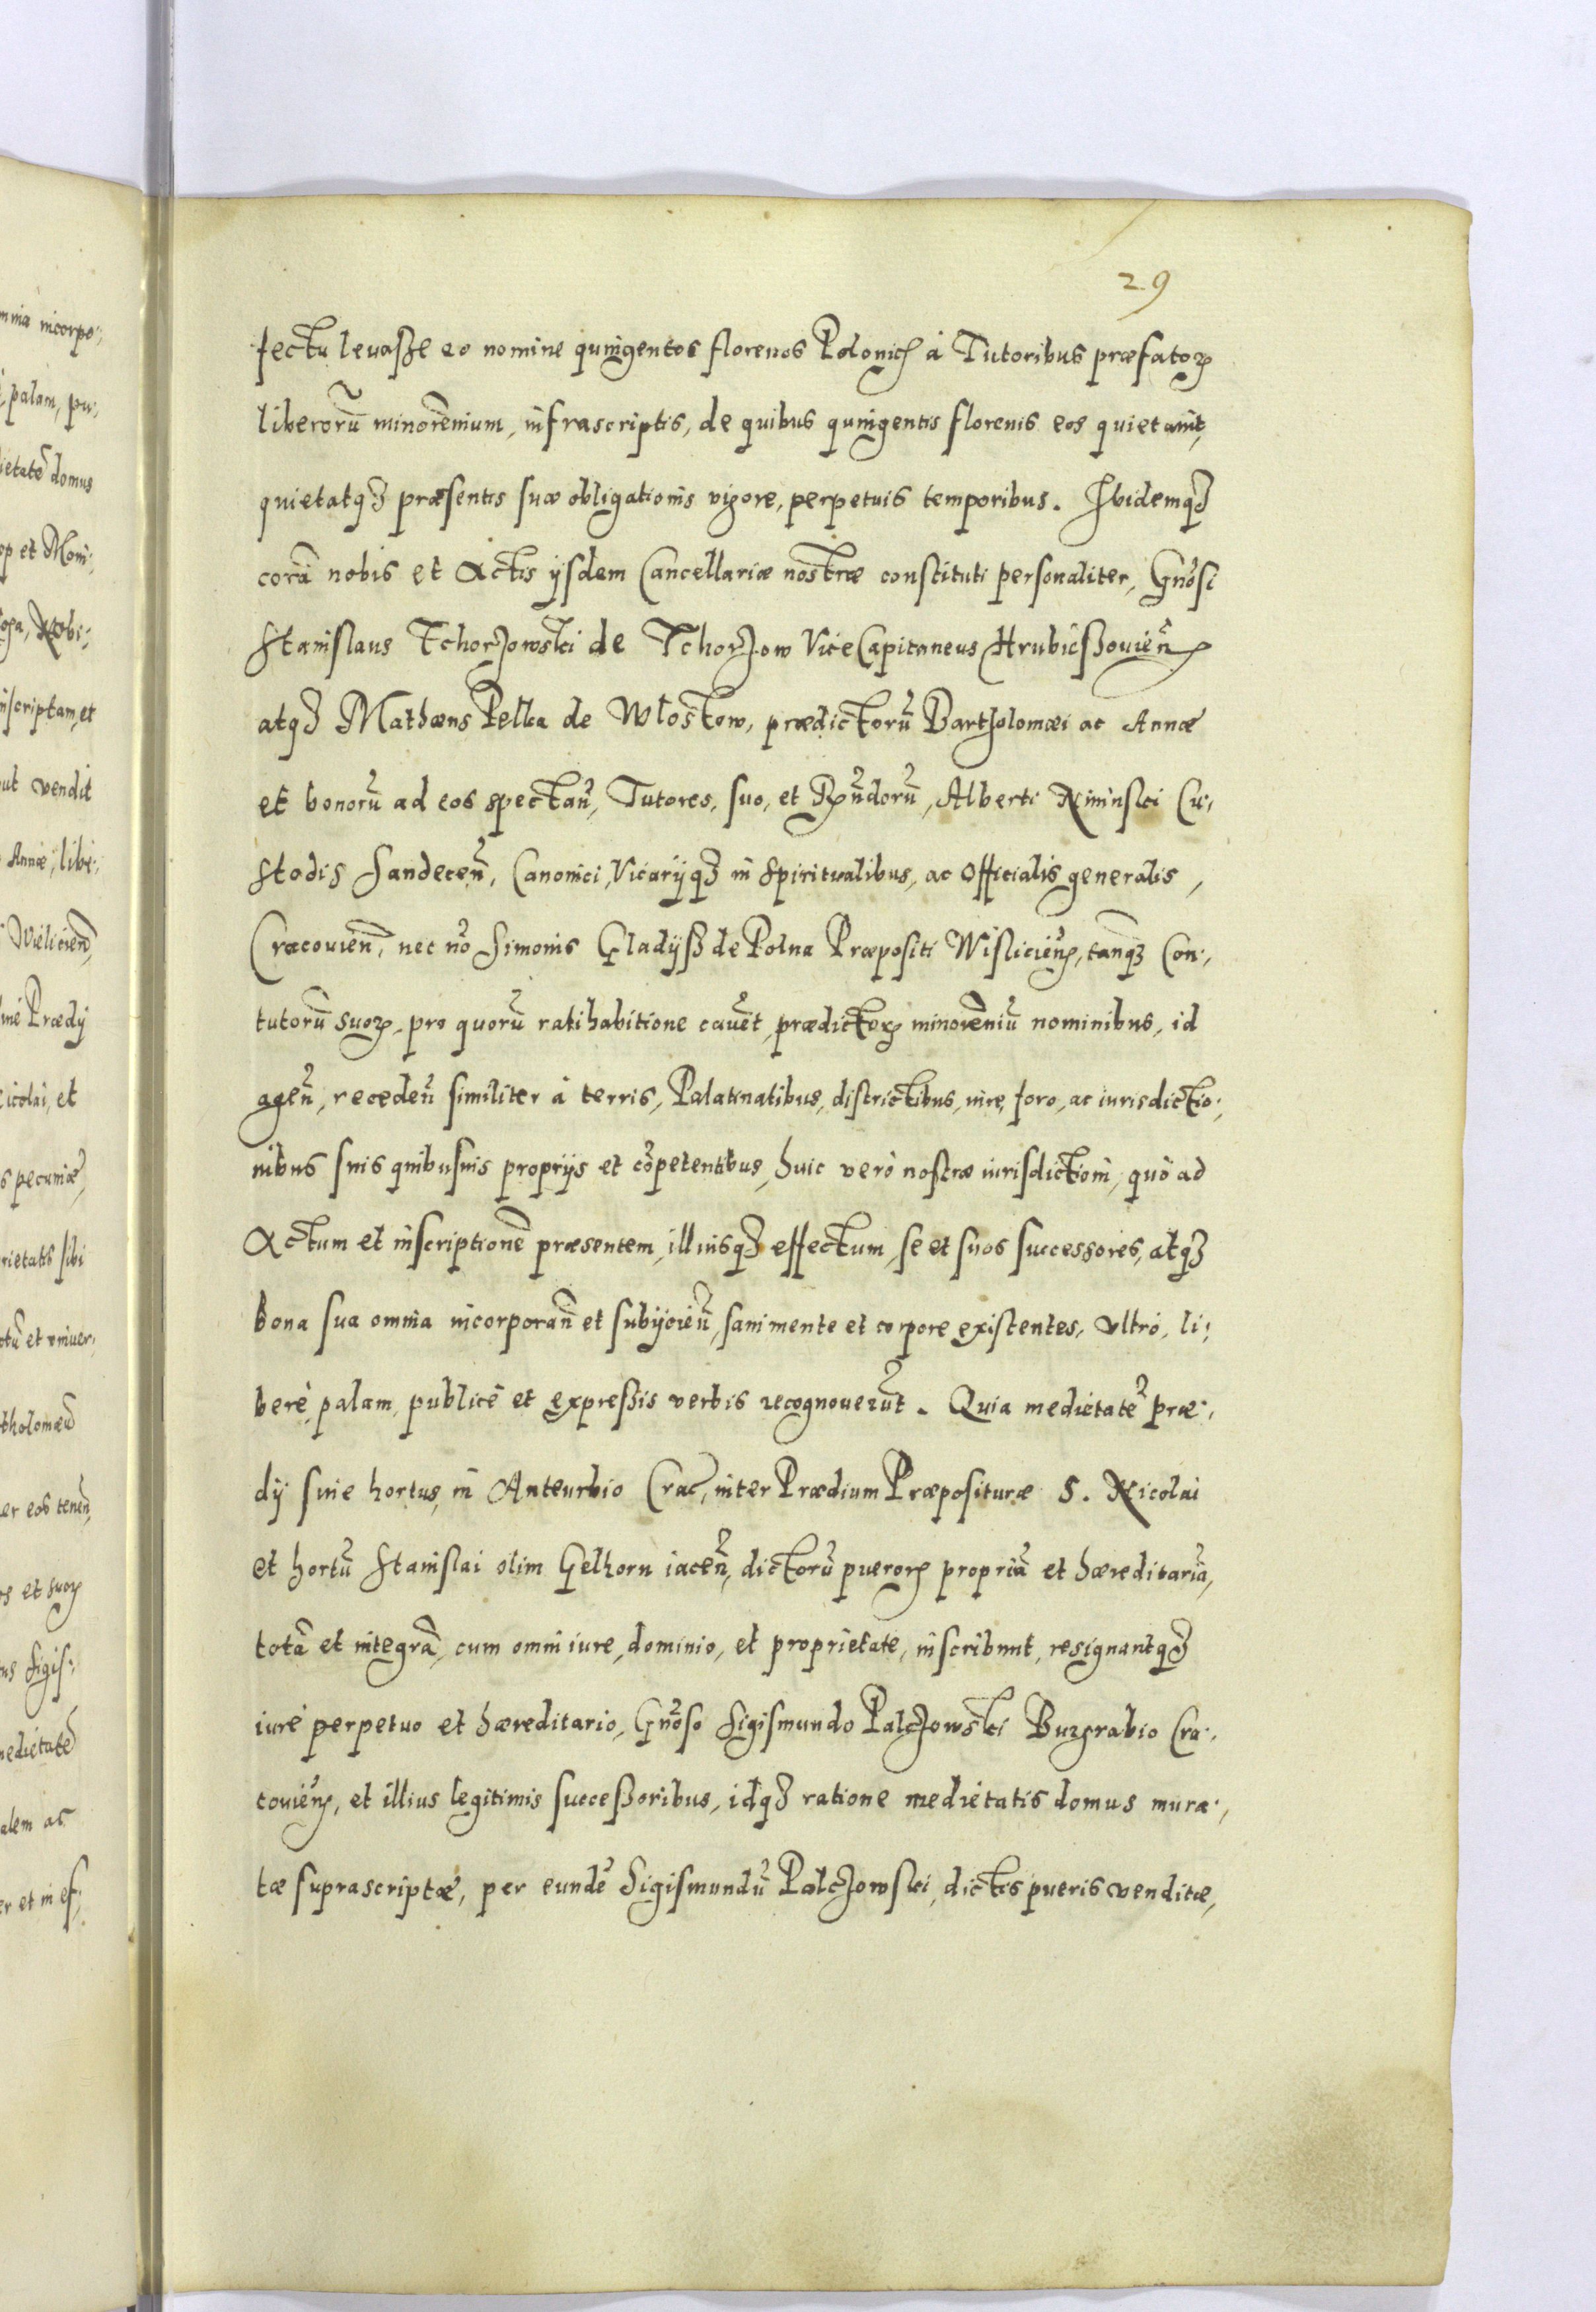 29
fectu levasse eo nomine quingentos florenos Polonicꝭ à Tutoribus præfatoꝝ
liberorũ minorẽnium, infrascriptis, de quibus quingentis florenis eos quietavit,
quietatqꝫ præsentis suæ obligationis vigore, perpetuis temporibus. Ibidemqꝫ
corã nobis et Actis ijsdem Cancellariæ nostræ constituti personaliter, Gñosi
Stanislaus Tchorzowski de Tchorzow ViceCapitaneus Hrubiesſoviẽn
atqꝫ Mathæus Pelka de Wlostow, prædictorũ Bartholomæi ac Annæ
et bonorũ ad eos spectañ, Tutores, suo, et Rñdorũ, Alberti Niminski Cu,
stodis Sandeceñ, Canonici, Vicarijqꝫ in Spiritualibus, ac Officialis generalis,
Cracovieñ, nec nõ Simonis Gladijsz de Polna Præpositi Wisliciẽn, tanqꝫ Con,
tutorũ suoꝝ, pro quorũ ratihabitione cavẽt, prædictoꝝ minorẽniũ nominibus, id
ageñ, recedeñ similiter à terris, Palatinatibus, districtibus, iure, foro, ac iurisdictio,
nibus suis quibusvis proprijs et cõpetentibus, huic verò nostræ iurisdictioni, quò ad
Actum et inscriptionẽ præsentem, illiusqꝫ effectum, se et suos successores, atqꝫ
bona sua omnia incorporañ et subijcieñ, sani mente et corpore existentes, Ultrò, li,
berè, palam, publicè et expressis verbis recognoverũt. Quia medietatẽ præ,
dij sive hortus, in Anteurbio Crac, inter Prædium Præposituræ S. Nicolai
et hortũ Stanislai olim Gelhorn iaceñ, dictorũ pueroꝝ propriã et hæreditariã,
totã et integrã, cum omni iure, dominio, et proprietate, inscribunt, resignantqꝫ
iure perpetuo et hæreditario, Gñoso Sigismundo Palczowski Burgrabio Cra,
coviẽn, et illius legitimis successoribus, idqꝫ ratione medietatis domus mura,
tæ suprascriptæ, per eundẽ Sigismundũ Palczowski, dictis pueris venditæ,